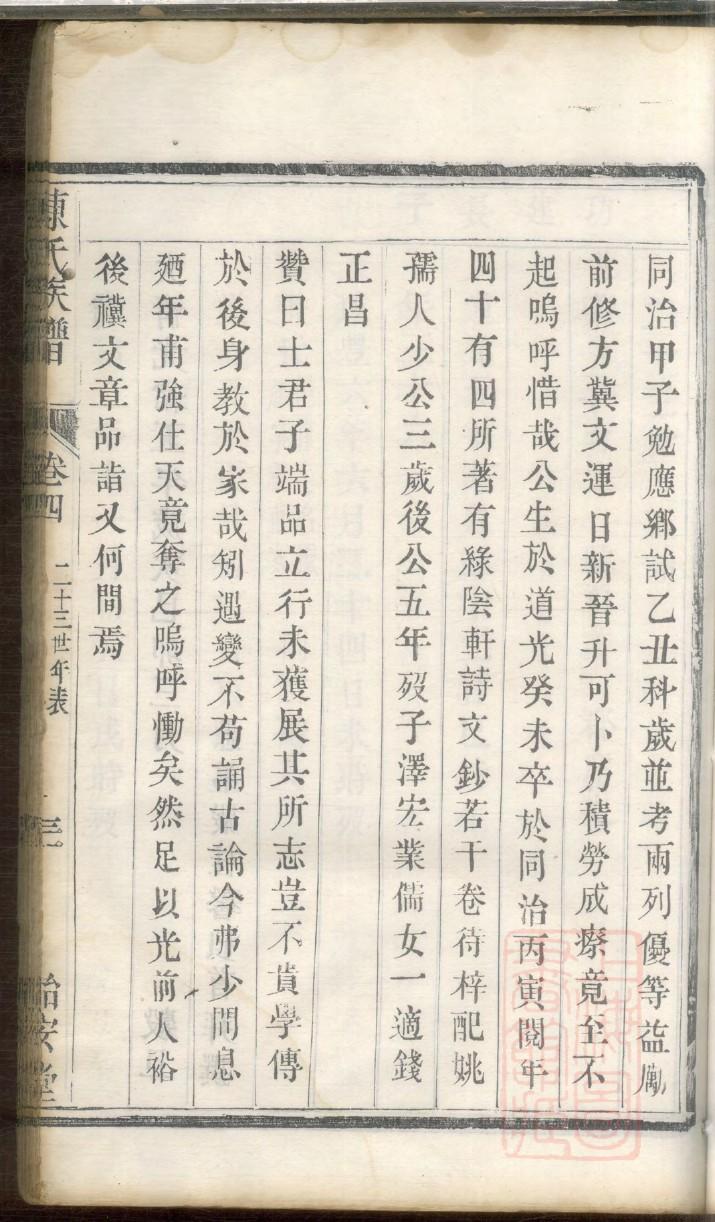 同治甲子勉應鄉試乙丑科歲並考兩列優等益勵
前修方冀文運日新晉升可卜乃積勞成瘵竟至不
起嗚呼惜哉公生於道光癸未卒於同治丙寅閱年
四十有四所著有綠陰軒詩文鈔若干卷待梓配姚
孺人少公三歲後公五年歿子澤宏業儒女一適錢
正昌
贊曰士君子端品立行未獲展其所志豈不貴學傳
於後身教於家哉矧遇變不苟誦古論今弗少間息
廼年甫強仕天竟奪之嗚呼慟矣然足以光前人裕
後襈文章品詣又何間焉
陳氏族譜 卷四 二十三世年表 三 怡安堂